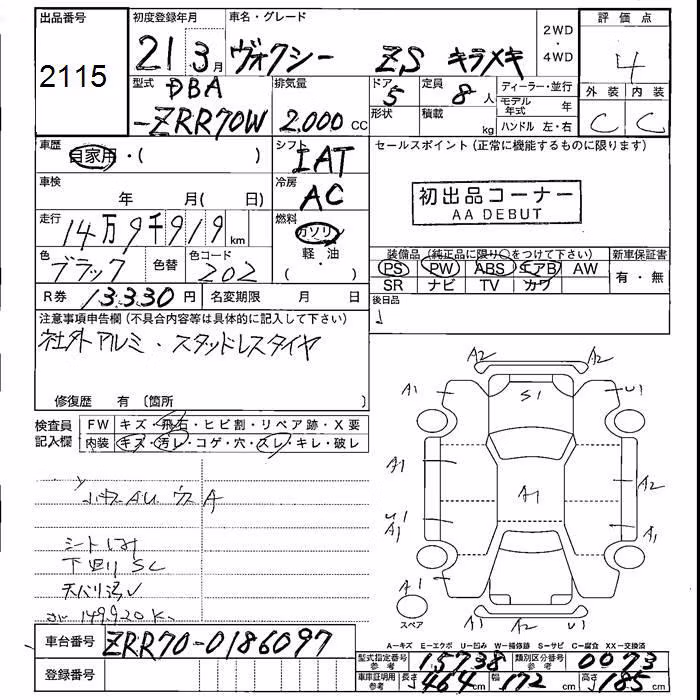 出品番号
2115
初度登録年月
21 3月
車名・グレード
ヴォクシー ZS キラメキ
2WD
・
4WD
評価点
4
外装 内装
C C
型式
DBA
-ZRR70W
排気量
2,000 CC
ドア
5
形状
定員
8人
積載
kg
ディーラー・並行
モデル年式 年
ハンドル 左・右
車歴
自家用・( )
シフト
IAT
セールスポイント (正常に機能するものに限ります)
車検
年 月( 日)
冷房
AC
初出品コーナー
AA DEBUT
走行
14万9千919km
燃料
ガソリン
軽・油
色
ブラック
色替
色コード
202
装備品 (純正品に限り○をつけて下さい)
PS PW ABS エアB AW
SR ナビ TV カワ
新車保証書
有・無
R券 13330円
名変期限 月 日
後日品
注意事項申告欄 (不具合内容等は具体的に記入して下さい)
社外アルミ・スタッドレスタイヤ
修復歴 有 〔箇所
検査員
記入欄
FW キズ・飛石・ヒビ割・リペア跡・X要
内装 キズ・汚レ・コゲ・穴・スレ・キレ・破レ
シート
下回り SC
149920K
A2 A2
A1 S1 U1
A1 A1 A2
U1 A1
A1
スペア
A1 A2 U1
車台番号 ZRR70-0186097
登録番号
A-キズ E-エクボ U-凹み W-補修跡 S-サビ C-腐食 XX-交換済
型式指定番号 参考 15738
類別区分番号 参考 0073
車庫証明用 参考 長さ 464cm 幅 172cm 高さ 185cm